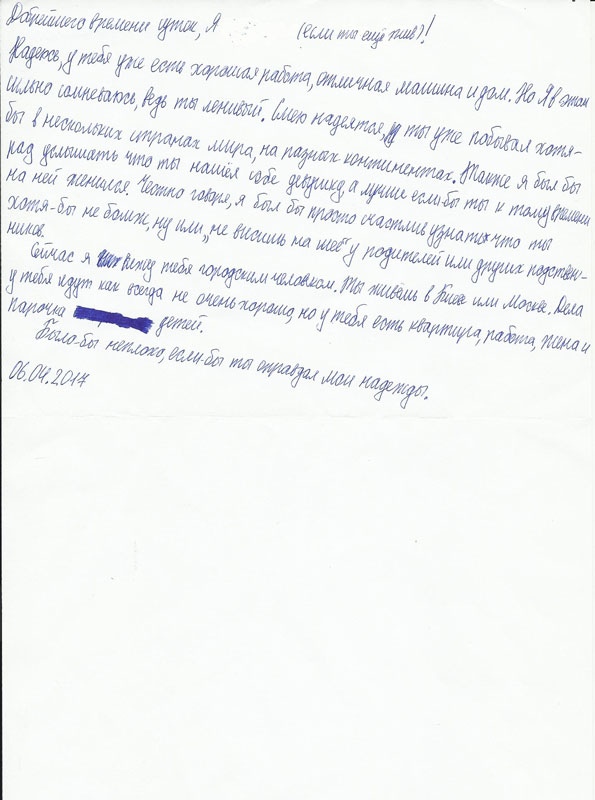 Добрейшего времени суток, Я (если ты ещё жив)!
Надеюсь, у тебя уже есть хорошая работа, отличная машина и дом. Но Я в этом
сильно сомневаюсь, ведь ты ленивый. Смею надеятся, ты уже побывал хотя-
бы в нескольких странах мира, на разных континентах. Также я был бы
рад услышать что ты нашёл себе девушку, а лучше если-бы ты к тому времени
на ней женился. Честно говоря, я был бы просто счастлив узнать что ты
хотя-бы не бомж, ну или „не висишь на шее" у родителей или других родствен-
ников.
Сейчас я вижу тебя городским человеком. Ты живёшь в Киеве или Москве. Дела
у тебя идут как всегда не очень хорошо, но у тебя есть квартира, работа, жена и
парочка детей.
Было-бы неплохо, если-бы ты оправдал мои надежды.
06.04.2017